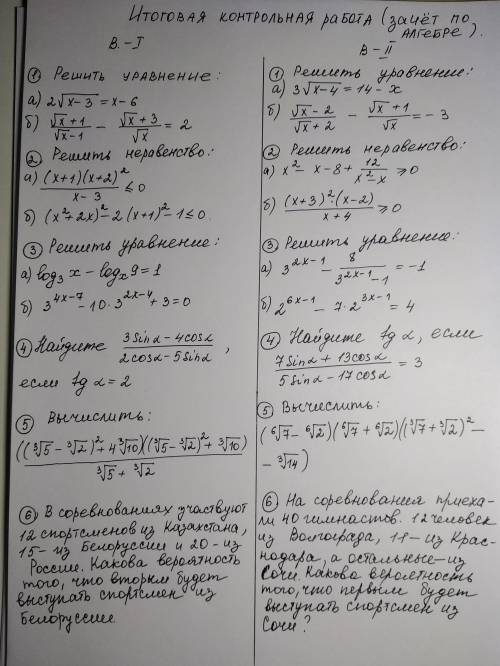 Итоговая контрольная работа (зачёт по алгебре).
В.-I
① Решить уравнение:
а) 2√(x-3) = x-6
б) (√x+1)/(√x-1) - (√x+3)/√x = 2
② Решить неравенство:
а) (x+1)(x+2)²/(x-3) ≤0
б) (x²+2x)²-2(x+1)²-1≤0.
③ Решить уравнение:
а) log₃ x - logₓ 9=1
б) 3^(4x-7) -10·3^(2x-4)+3=0
④ Найдите (3sinα-4cosα)/(2cosα-5sinα),
если tgα=2
⑤ Вычислить:
((∛5-∛2)²+4∛10)((∛5-∛2)²+∛10)/(∛5+∛2)
⑥ В соревнованиях участвуют
12 спортсменов из Казахстана,
15- из Белоруссии и 20-из
России. Какова вероятность
того, что вторым будет
выступать спортсмен из
Белоруссии.
В-II
① Решить уравнение:
а) 3√(x-4)=14-x
б) (√x-2)/(√x+2) - (√x+1)/√x = -3
② Решить неравенство:
а) x²-x-8+12/(x²-x) ≥0
б) (x+3)²·(x-2)/(x+4) ≥0
③ Решить уравнение:
а) 3^(2x-1) - 8/(3^(2x-1)-1) =-1
б) 2^(6x-1) - 7·2^(3x-1) = 4
④ Найдите tgα, если
(7sinα+13cosα)/(5sinα-17cosα) = 3
⑤ Вычислить:
(⁶√7-⁶√2)(⁶√7+⁶√2)((∛7+∛2)²-
-∛14)
⑥ На соревнования приеха-
ли 40 гимнастов. 12 человек
из Волгограда, 11-из Крас-
нодара, а остальные-из
Сочи. Какова вероятность
того, что первым будет
выступать спортсмен из
Сочи?